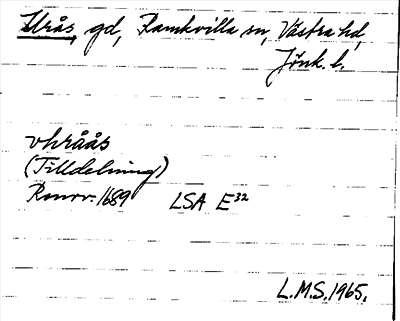 Urås, gd, Ramkvilla sn, Västra hd,
Jönk. l.
vhråås
(Tilldelning)
Renov. 1689 LSA E³²
L.M.S. 1965.